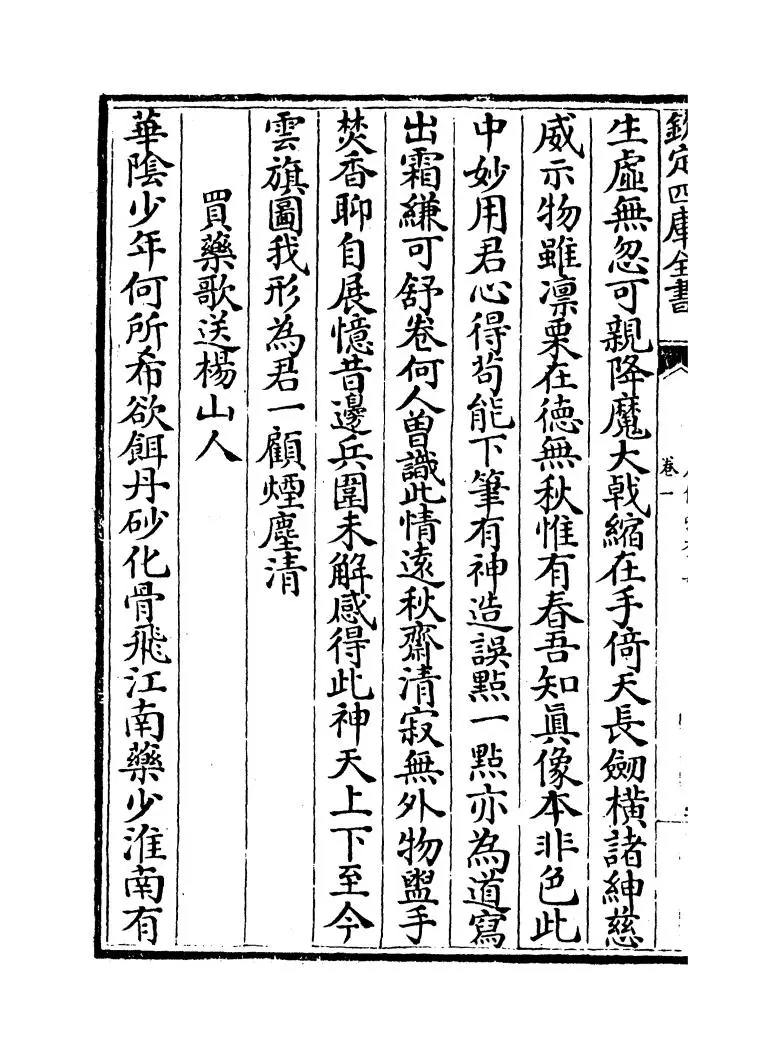 欽定四庫全書
卷一
生虛無忽可親降魔大㦸縮在手倚天長劒橫諸紳慈
威示物雖凛栗在德無秋惟有春吾知眞像本非色此
中妙用君心得茍能下筆有神造誤點一點亦為道寫
出霜縑可舒卷何人曽識此情遠秋齋清寂無外物盥手
焚香聊自展憶昔邊兵圍未解感得此神天上下至今
雲旗圖我形為君一顧煙塵清
買藥歌送楊山人
華陰少年何所希欲餌丹砂化骨飛江南藥少淮南有